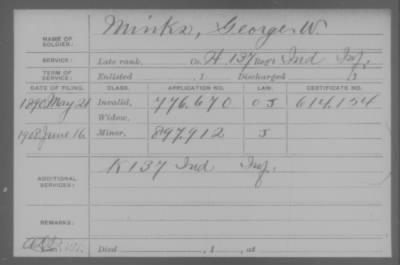 NAME OF SOLDIER: Minks, George W.
SERVICE: Late rank, Co. H, 137 Reg't Ind Inf,
TERM OF SERVICE: Enlisted , 1 Discharged , 1
DATE OF FILING. CLASS. APPLICATION NO. LAW. CERTIFICATE NO.
1890 May 21 Invalid, 776.670 614.154
Widow,
1908 June 16 Minor, 897.912
ADDITIONAL SERVICES: K 137 Ind Inf.
REMARKS:
Died , 1 , at